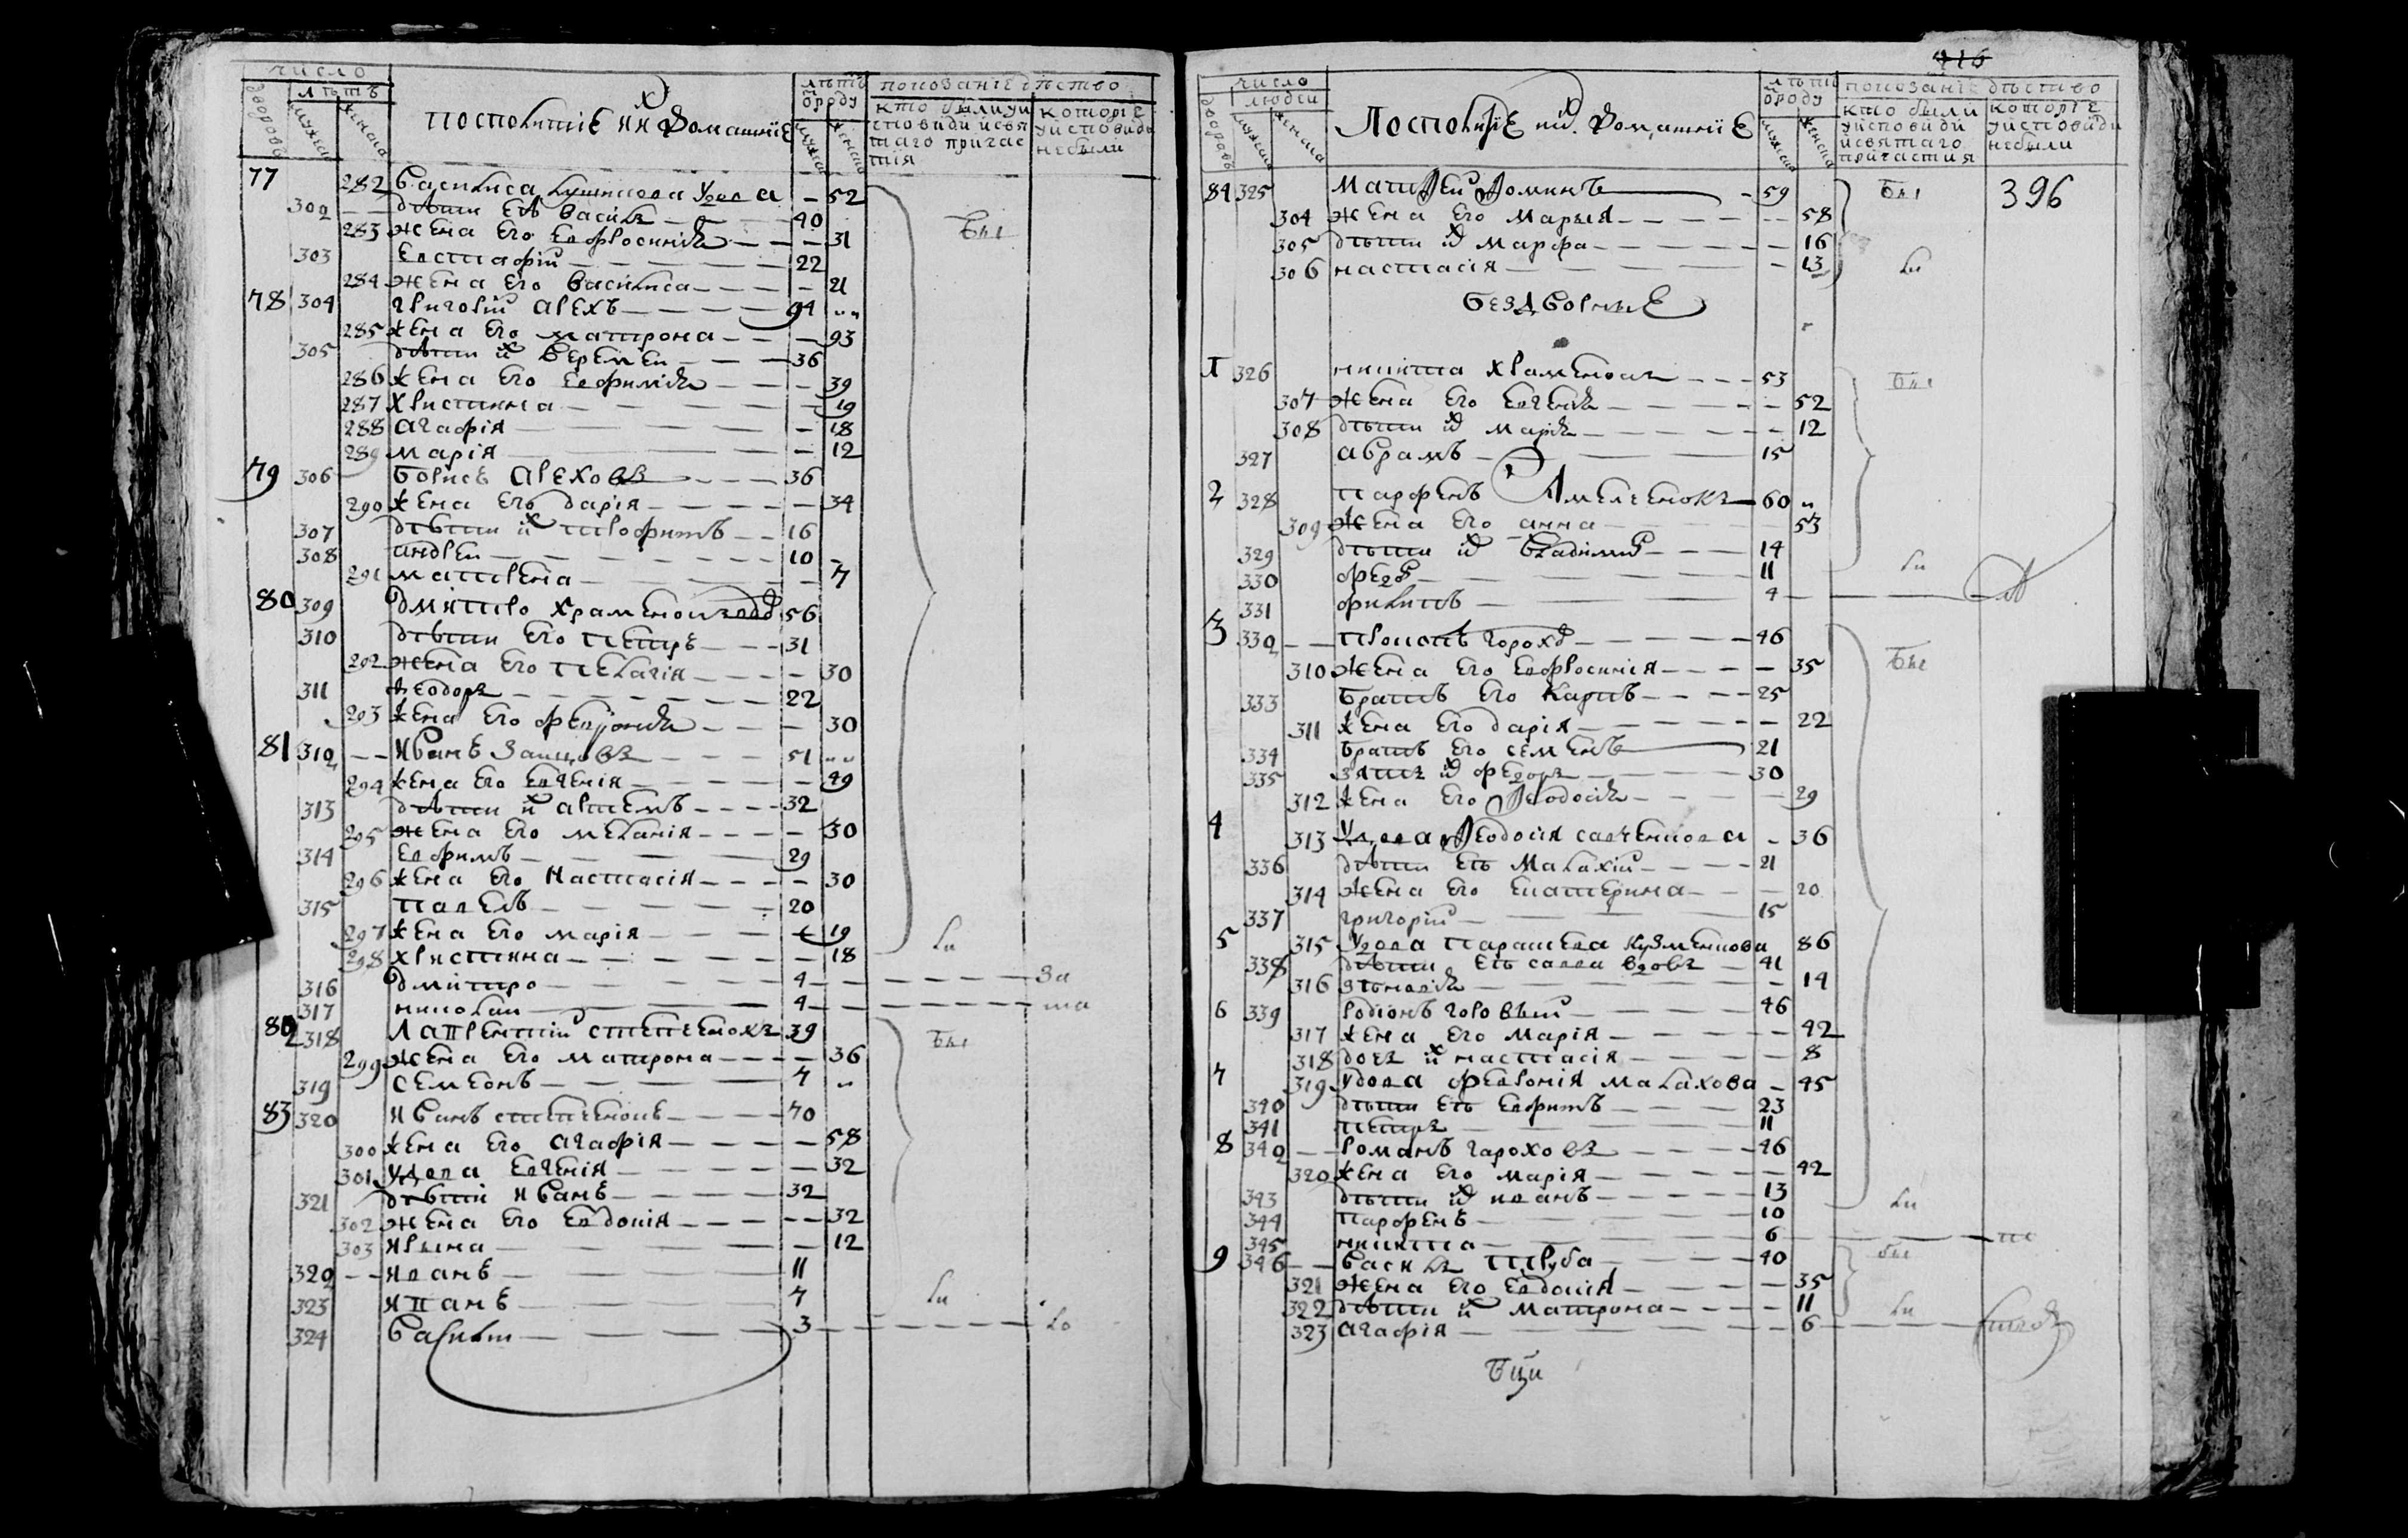 число
лѣтъ
дворовъ
мужеска
женска
посполитіе ихъ домашніе
лѣтъ ѿроду
мужеска
женска
показаніе дѣйства
кто были у исповиди и святаго причастія
которіе у исповиди небыли
77 282 Василиса удова — 52
302 — дѣти еѣ Василь — 40
283 жена его Евфросинія — 31
303 Евстафій — 22
284 жена его Василиса — 21
78 304 Григорій Арехъ — 94
285 жена его матрона — 93
305 дѣти их Веремей — 36
286 жена его Евфимія — 39
287 Христина — 19
288 Агафія — 18
289 марія — 12
79 306 Борисъ Ареховъ — 36
290 жена его дарія — 34
307 дѣти их трофимъ — 16
308 андрей — 10
291 матрена — 7
80 309 дмитро Храменко 56
310 дѣти его петръ — 31
292 жена его пелагія — 30
311 Ѳеодоръ — 22
293 жена его февронія — 30
81 312 — Иванъ Зайцовъ — 51
294 жена его Евгенія — 49
313 дѣти их артемъ — 32
295 жена его меланія — 30
314 Евфимъ — 29
296 жена его Настасія — 30
315 павелъ — 20
297 жена его марія — 19
298 христина — 18
316 дмитро — 4 — За
317 николай — 4 — ма
82 318 Лаврентій степченокъ 39
299 жена его матрона — 36
319 семеонъ — 7
83 320 Иванъ степченокъ — 70
300 жена его агафія — 58
301 удова Евгенія — 32
321 дѣтий Иванъ — 32
302 жена его Евдокія — 32
303 Ирина — 12
322 — Иванъ — 11
323 Ипанъ — 7
324 Василій — 3 — ло
бы
ли
бы
ли
416
число
людей
дворовъ
мужеска
женска
Посполитіе их домашніе
лѣтъ ѿроду
мужеска
женска
показаніе дѣйства
кто были у исповиди и святаго причастия
которіе у исповиди небыли
396
84 325 Матфей Фоминъ — 59
304 жена его Марыя — 58
305 дѣти их марфа — 16
306 настасія — 13
бы
ли
бездворніе
1 326 никита храменокъ — 53
307 жена его Евгенія — 52
308 дѣти их марія — 12
327 абрамъ — 15
2 328 парфенъ Амелченокъ — 60
309 жена его анна 53
329 дѣти их Владимиръ — 14
330 федоръ — 11
331 филипъ — 4
бы
ли
3 332 — прокопъ горохъ — 46
310 жена его Евфросинія — 35
333 братъ его Карпъ — 25
311 жена его дарія — 22
334 братъ его семенъ 21
335 зять их федоръ — 30
312 жена его Ѳеодосія — 29
4 313 удова Ѳеодосія савченкова — 36
336 дѣти еѣ Малахій — 21
314 жена его екатерина — 20
337 григорій — 15
5 315 удова параскева кузменкова 86
338 дѣти еѣ савва вдовъ — 41
316 — 14
6 339 родіонъ — 46
317 жена его Марія — 42
318 дочъ их настасія — 8
7 319 удова февронія малахова — 45
340 дѣти еѣ Евфимъ — 23
341 петръ — 11
8 342 — романъ гороховъ — 46
320 жена его марія — 42
343 дѣти их иванъ — 13
344 парфенъ — 10
345 никита — 6
9 346 — Василь труба — 40
321 жена его Евдокія — 35
322 дѣти их матрона — 11
323 агафія — 6
бы
ли
бы
ли